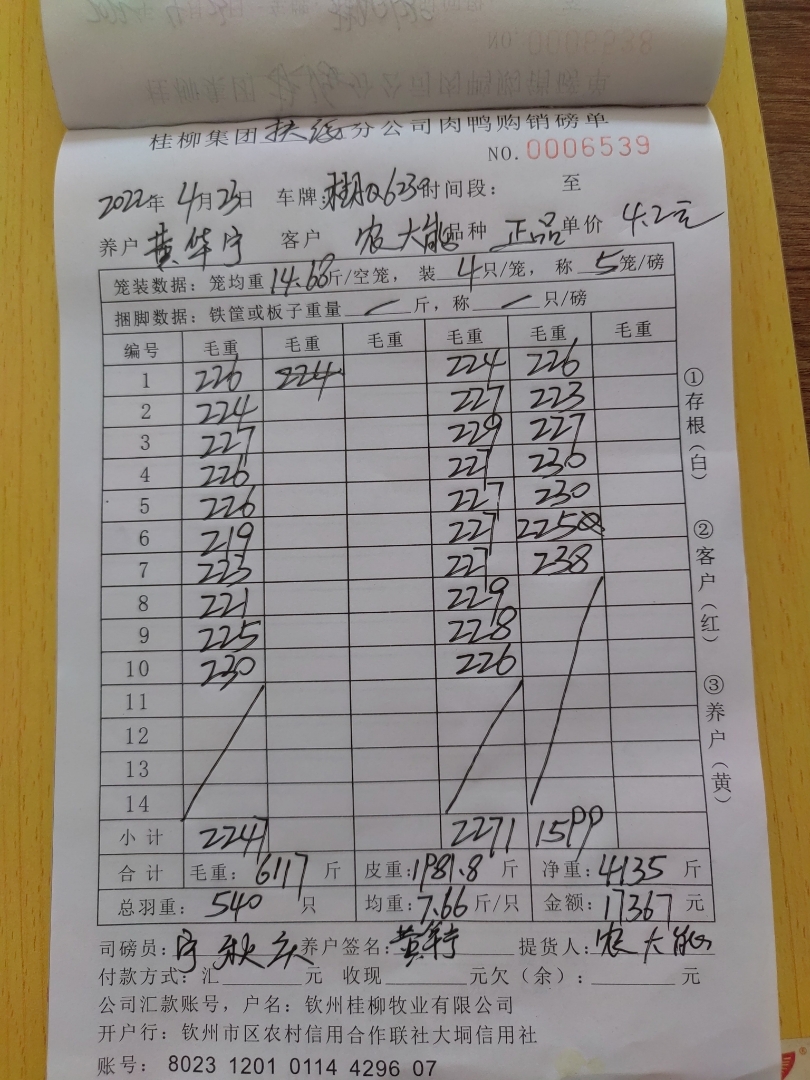 桂柳集团扶绥分公司肉鸭购销磅单
NO. 0006539
2022年 4月23日 车牌: 时间段: 至
养户 黄华宁 客户 农大能 品种 正品 单价 4.2元
笼装数据: 笼均重14.68斤/空笼, 装 4 只/笼, 称 5 笼/磅
捆脚数据: 铁筐或板子重量 / 斤, 称 / 只/磅
编号 毛重 毛重 毛重 毛重 毛重 毛重
1 226 224 224 226
2 224 227 223
3 227 229 227
4 226 227 230
5 226 227 230
6 219 227 225
7 223 227 238
8 221 229
9 225 228
10 230 226
11
12
13
14
小计 2247 2271 1599
合计 毛重: 6117 斤 皮重: 1981.8 斤 净重: 4135 斤
总羽重: 540 只 均重: 7.66 斤/只 金额: 17367 元
司磅员: 养户签名: 提货人: 农大能
付款方式: 汇 元 收现 元欠(余): 元
公司汇款账号, 户名: 钦州桂柳牧业有限公司
开户行: 钦州市区农村信用合作联社大垌信用社
账号: 8023 1201 0114 4296 07
①存根(白)
②客户(红)
③养户(黄)